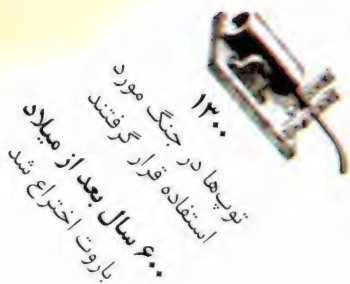 ۱۳۰۰
توپ‌ها در جنگ مورد
استفاده قرار گرفتند
۶۰۰ سال بعد از میلاد
باروت اختراع شد